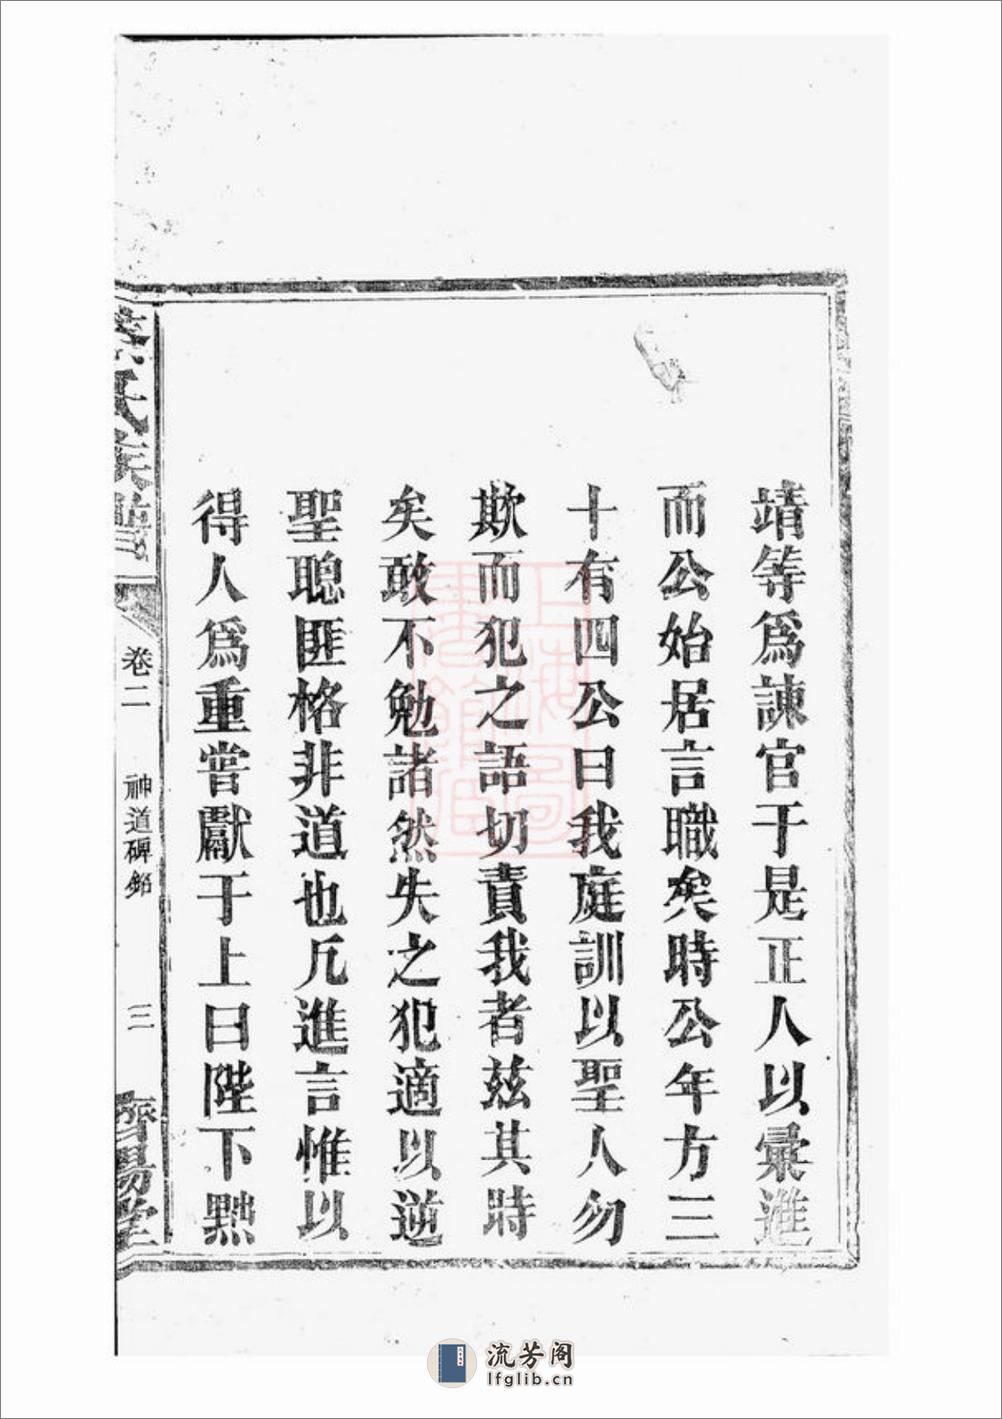 靖等爲諫官于是正人以彙進
而公始居言職矣時公年方三
十有四公曰我庭訓以聖人勿
欺而犯之語切責我者兹其時
矣敢不勉諸然失之犯適以逆
聖聰匪格非道也凡進言惟以
得人爲重嘗獻于上曰陛下黜
氏族譜
卷二
神道碑銘
三
濟陽堂
上海圖書館藏
流芳阁
lfglib.cn